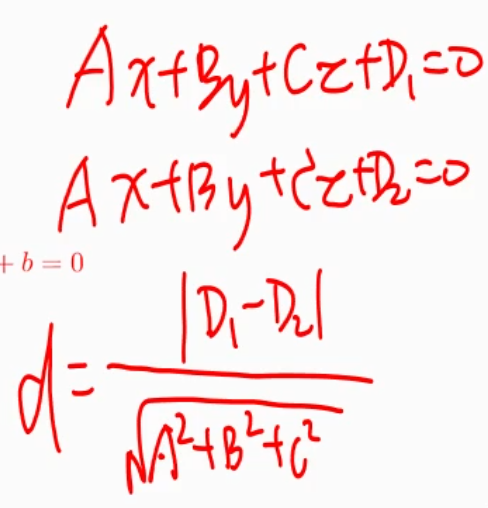 Ax+By+Cz+D₁=0
Ax+By+Cz+D₂=0
+ b = 0
d = |D₁-D₂| / √(A²+B²+C²)